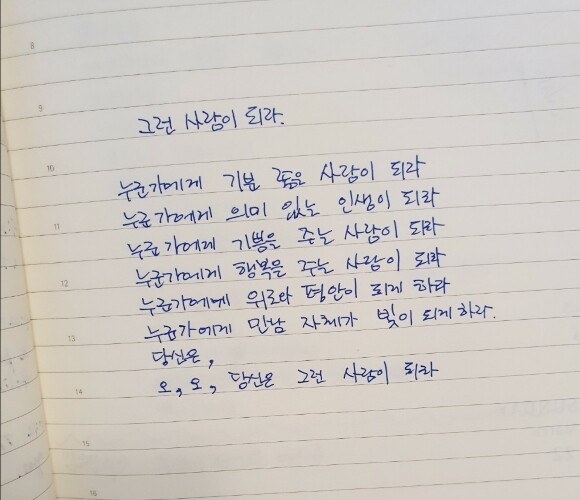 8
9
그런 사람이 되라.
10
누군가에게 기분 좋은 사람이 되라
11
누군가에게 의미 있는 인생이 되라
누군가에게 기쁨을 주는 사람이 되라
12
누군가에게 행복을 주는 사람이 되라
누군가에게 위로와 평안이 되게 하라
13
누군가에게 만남 자체가 빛이 되게 하라.
당신은,
14
오, 오, 당신은 그런 사람이 되라
15
16